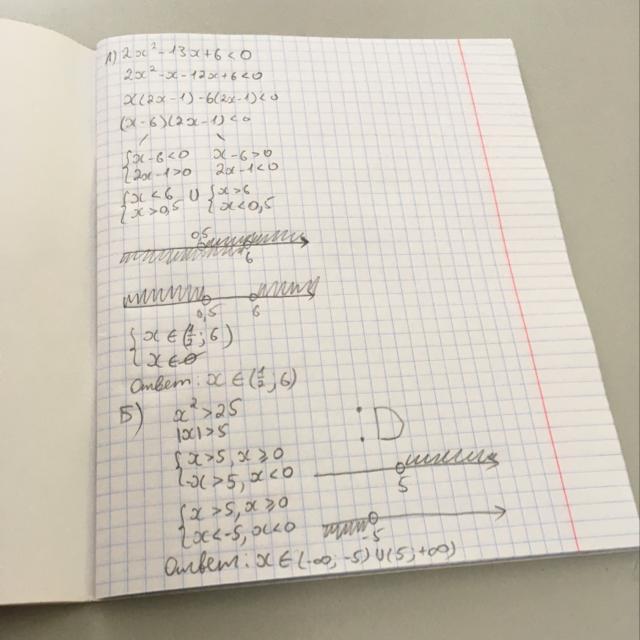 А) 2x² - 13x + 6 < 0
2x² - x - 12x + 6 < 0
x(2x-1) - 6(2x-1) < 0
(x-6)(2x-1) < 0
{x-6<0 x-6>0
{2x-1>0 2x-1<0
{x<6 U {x>6
{x>0,5 {x<0,5
0,5
6
0,5 6
{x∈(1/2; 6)
{x∈∅
Ответ: x∈(1/2; 6)
Б) x² > 25
|x| > 5
:D
{x>5, x⩾0
{-x>5, x<0
5
{x>5, x⩾0
{x<-5, x<0
-5
Ответ: x∈(-∞, -5)U(5; +∞)